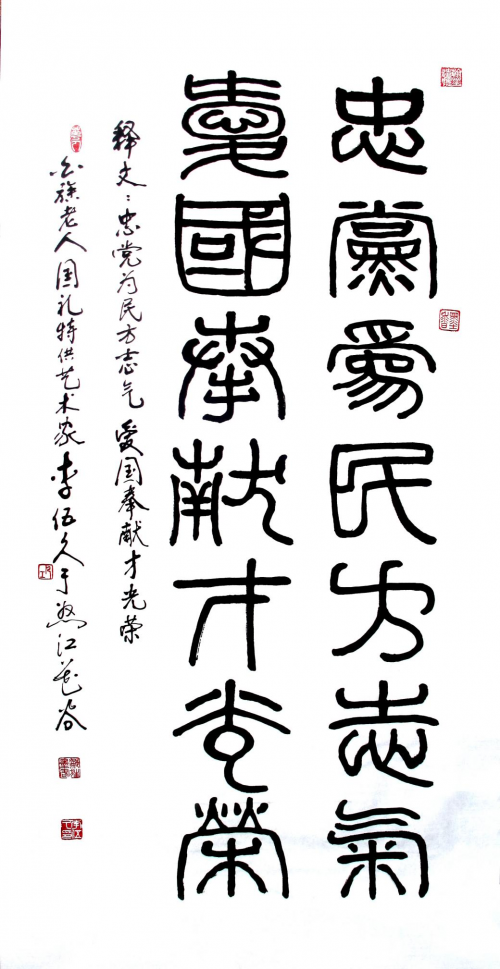 忠黨爲民方志氣
愛國奉獻才光榮
释文：忠党为民方志气 爱国奉献才光荣
白族老人国礼特供艺术家李伍久于怒江花谷